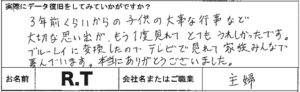 実際にデータ復旧をしてみていかがですか?
3年前くらいからの子供の大事な行事など
大切な思い出が、もう1度見れてとてもうれしかったです。
ブルーレイに変換したのでテレビで見れて家族みんなで
喜んでいます。本当にありがとうございました。
お名前 R.T 会社名またはご職業 主婦